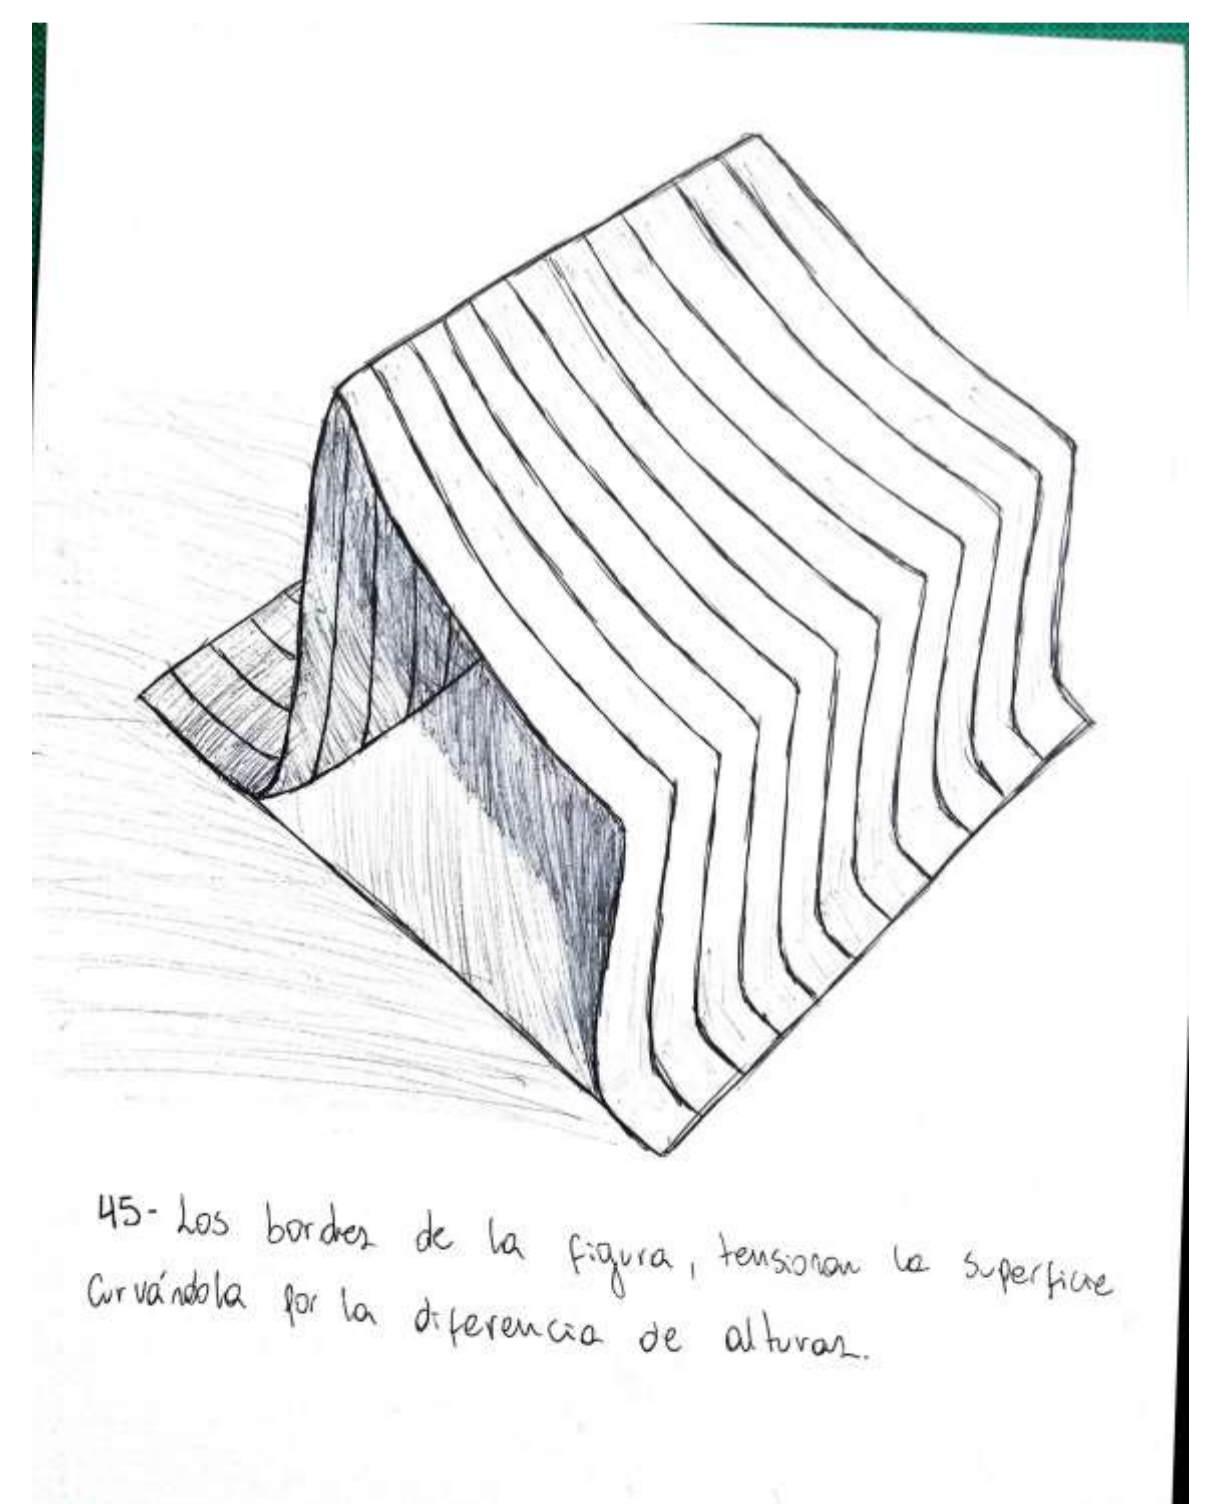 45- Los bordes de la figura, tensionan la superficie
curvándola por la diferencia de alturas.